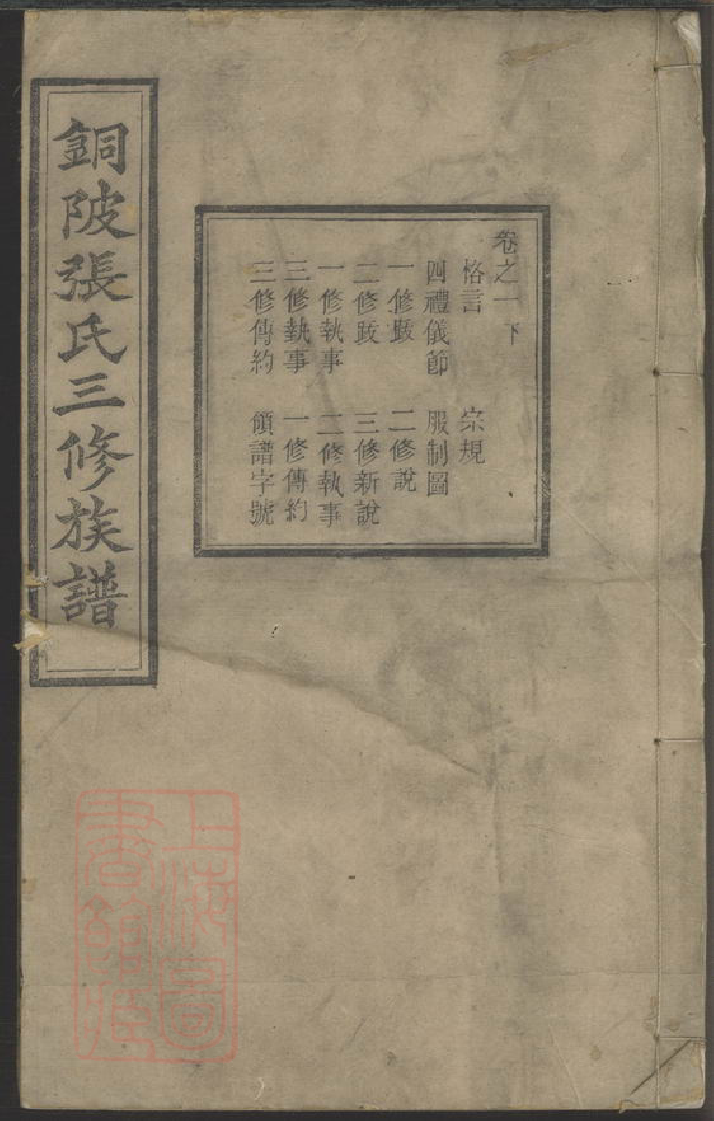 銅陂張氏三修族譜
卷之一 下
格言 宗規
四禮儀節 服制圖
一修跋 二修說
二修跋 三修新說
一修執事 二修執事
三修執事 一修傳約
三修傳約 領譜字號
上海圖
書館藏